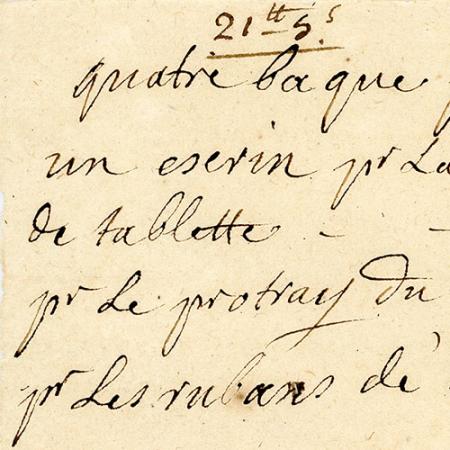 21 tt 5 s
quatre baque
un eserin pr La
de tablette - -
pr Le protray du
pr Les rubans de